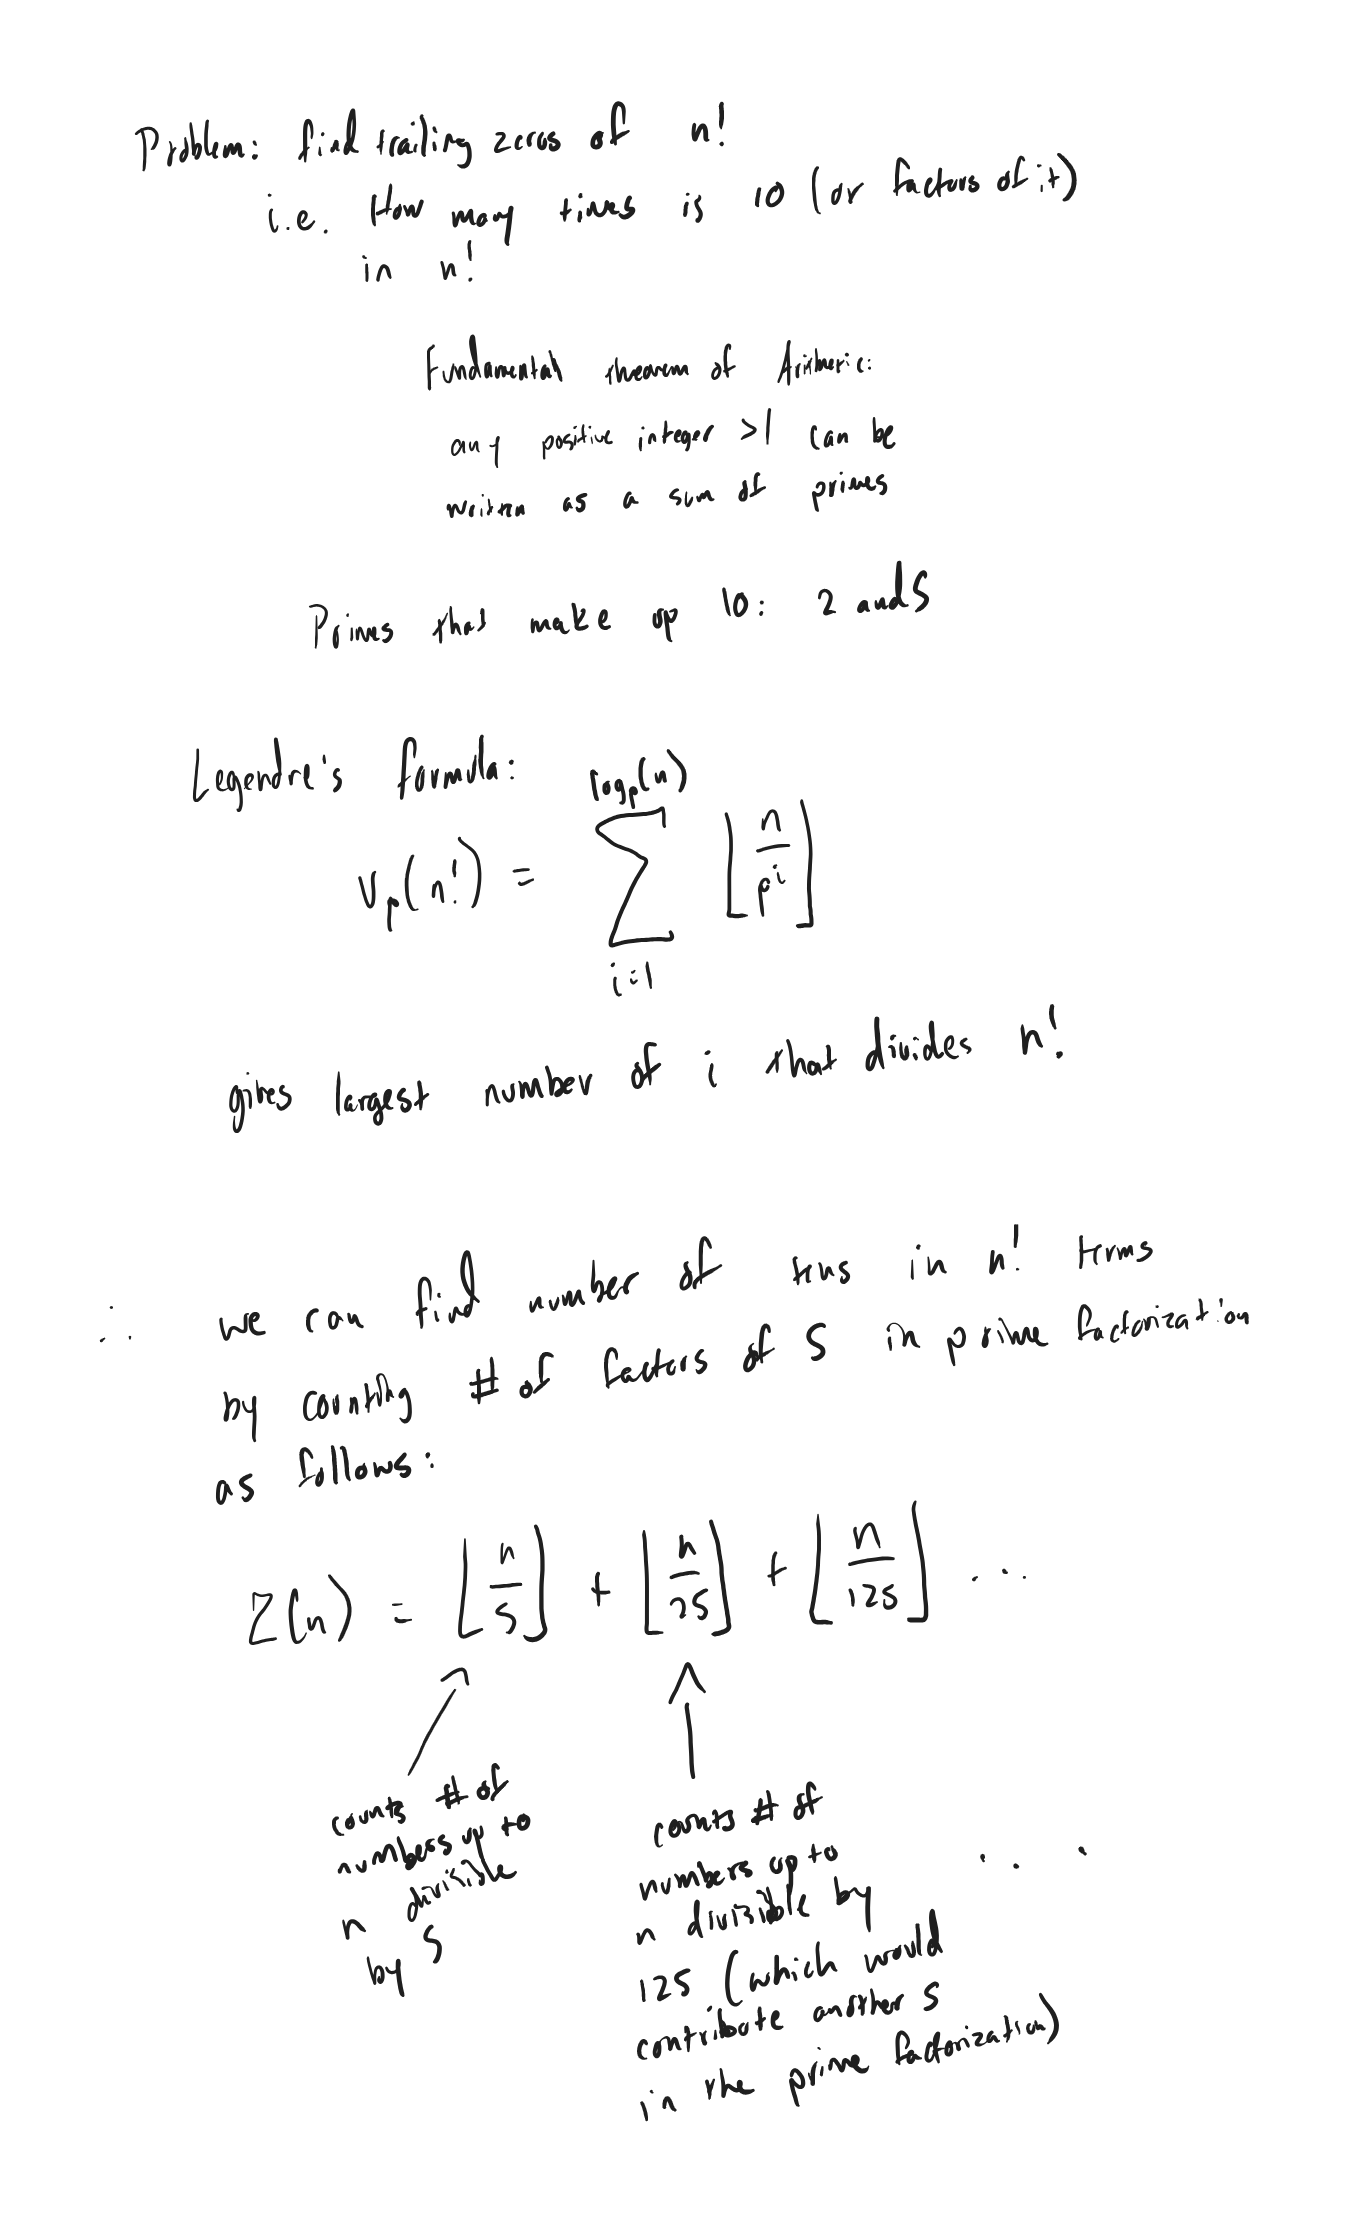 Problem: find trailing zeros of n!
i.e. How many times is 10 (or factors of it)
in n!
Fundamental theorem of Arithmetic:
any positive integer >1 can be
written as a sum of primes
Primes that make up 10: 2 and 5
Legendre's formula:
v_p(n!) = \sum_{i=1}^{log_p(n)} ⌊n/p^i⌋
gives largest number of i that divides n!
∴ we can find number of tens in n! terms
by counting # of factors of 5 in prime factorization
as follows:
Z(n) = ⌊n/5⌋ + ⌊n/25⌋ + ⌊n/125⌋ ...
counts # of
numbers up to
n divisible
by 5
counts # of
numbers up to
n divisible by
125 (which would
contribute another 5
in the prime factorization)
...